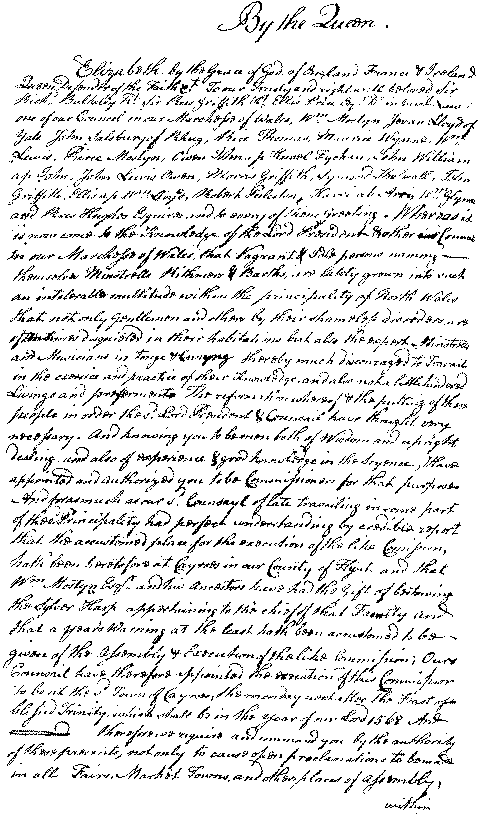 By the Queen.
Elizabeth by the Grace of God of England France & Ireland
Queen, Defender of the Faith &c. To our trusty and right well beloved Sir
Rich. Bulkeley Kt. Sir Rees Griffith Kt. Ellis Price Esqr. Dr. in Civil Law;
one of our Council in our Marches of Wales, Wm. Mostyn, Jevan Lloyd of
Yale John Salsbury of Rhug, Rice Thomas, Maurice Wynne, Wm.
Lewis, Pierce Mostyn, Owen John ap Howel Fychan, John William
ap John, John Lewis Owen, Morris Griffith, Symound Thelwall, John
Griffith, Ellis ap Wm. Lloyd, Robert Puleston, Harri ap Wm. Glynne
and Rees Hughes Esquires, and to every of them greeting. Whereas it
is now come to the Knowledge of the Lord President & other our Council
in our Marches of Wales, that Vagrant & Idle persons naming
themselves Minstrells Rithmers & Barths, are lately grown into such
an intolerable multitude within the principality of North Wales
that not only Gentlemen and others by their shameless disorders are
oftentimes disquieted in their habitations but also the expert Minstrels
and Musicians in tonge & cunnyng thereby much discouraged to Travail
in the exercise and practice of their Knowledge, and also not a little hindered
Livings and preferments The reformation whereof & the putting of these
people in order the sd. Lord President & Council have thought very
necessary. And knowing you to be men both of Wisdom and upright
dealing, and also of experience & good knowledge in the Scyence, have
appointed and authorized you to be Commissioners for that purpose
And forasmuch as our sd. Counsayl of late travailing in some part
of the sd. Principality had perfect understanding by credible report
that the accustomed place for the execution of the like Comission,
hath been heretofore at Cayroes in our County of Flynt. and that
Wm. Mostyn Esqr. and his Ancestors have had the Gift of bestowing
the Sylver Harp appertaining to the chief of that Faculty and
that a years warning at the least hath been accustomed to be
geven of the Assembly & Execution of the like Commission; Our sd.
Council have therefore appointed the execution of this Commission
to be at the sd. Town of Cayroes, the monday next after the Feast of
blessed Trinity, which shall be in the year of our Lord 1568 And
therefore require and command you by the authority
of these presents, not only to cause open proclamations to be made
in all Fairs, Market Towns, and other places of Assembly,
within